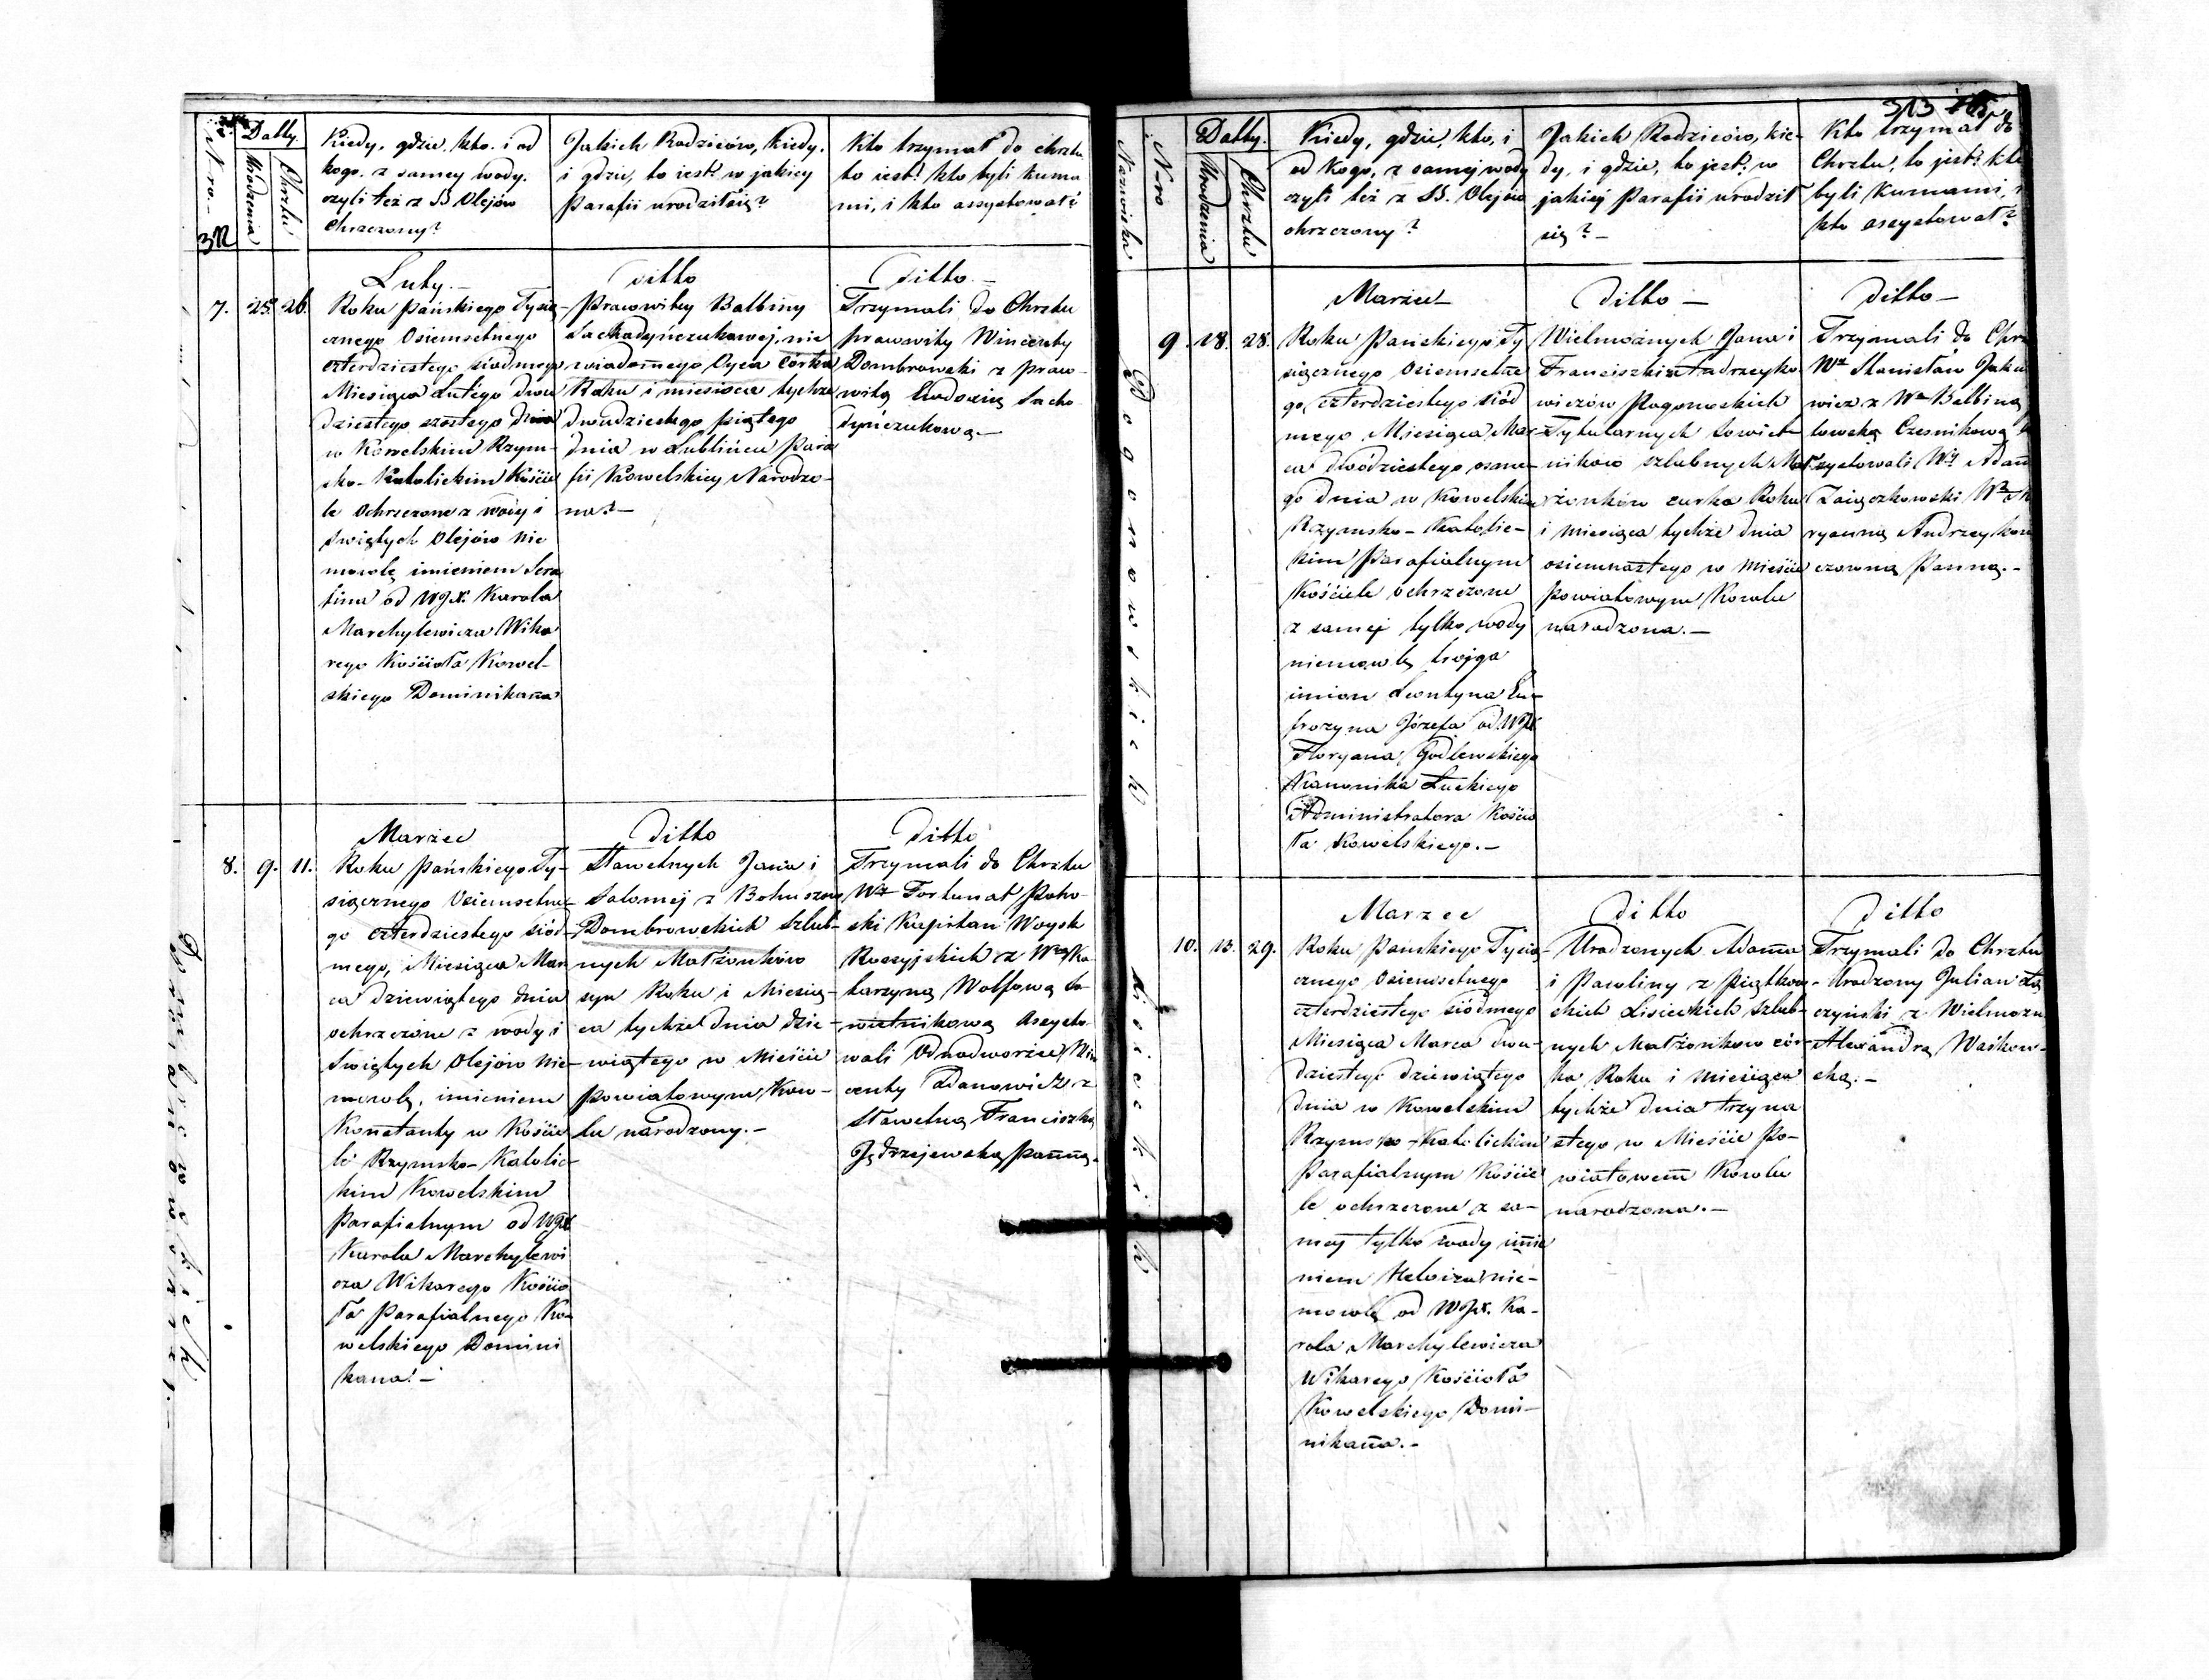 N-ro.
Datty.
Urodzenia
Chrztu
312
Kiedy, gdzie, kto. i od
kogo. z samey wody.
czyli też z SS Olejów
Chrzczony?
Jakich Rodziców, kiedy.
i gdzie, to iest: w jakiey
Parafii urodził się?
Kto trzymał do chrztu
to iest: kto byli kuma
mi, i kto assystował?
Luty.—
7. 25. 26.
Roku Pańskiego Tysią-
cznego Osiemsetnego
czterdziestego siódmego
Miesiąca Lutego dwu
dziestego szóstego dnia
w Kowelskim Rzym-
sko-Katolickim Kościę
le Ochrzczone z wody i
Swiętych Olejów Nie
mowlę imieniem Sera
fina od WJX. Karola
Marchylewicza Wika
rego Kościoła Kowel-
skiego Dominikana
ditto
Prawowitey Balbiny
nie
wiadomego Oyca córka
Roku i miesiąca tychże
dwudziestego piątego
dnia w Lublińcu Para
fii Kowelskiey Narodzo-
na.—
ditto.—
Trzymali do Chrztu
prawowity Wincenty
Dombrowski z praw-
witą Eudoxią Sacho
dyńczukową.—
Marzec
8. 9. 11.
Roku Pańskiego Ty-
siącznego Osiemsetne-
go czterdziestego siód-
mego, Miesiąca Mar
ca dziewiątego dnia
ochrzczone z wody i
Swiętych Olejów Nie-
mowlę, imieniem
Konstanty w Kościę
le Rzymsko-Katolic-
kim Kowelskim
Parafialnym od WJX
Karola Marchylewi
cza Wikarego Kościo
ła Parafialnego Ko-
welskiego Domini
kana.—
ditto
Sławetnych Jana i
Salomej z
Dombrowskich Szlub-
nych Małżonków
syn Roku i Miesią-
ca tychże dnia dzie-
wiątego w Mieście
Powiatowym Kow-
lu narodzony.—
ditto
Trzymali do Chrztu
Wny Fortunat
ski Kapitan Woysk
Rossyjskich z Wną Ka
tarzyną Wolfową So
wietnikową Assysto
wali Odnodworzec Win
centy Adanowicz z
Sławetną Franciszką
Jędrzejewską Panną.
Nazwiska
N-ro
Datty.
Urodzenia
Chrztu
Kiedy, gdzie, kto, i
od kogo, z samej wody
czyli też z SS. Olejów
chrzczony?
Jakich Rodziców, kie-
dy, i gdzie, to jest: w
jakiéj Parafii urodził
się?—
313
Kto trzymał do
Chrztu, to jest: kto
byli Kumami,
kto assystował?
Pogonowskich
Marzec
9. 18. 28.
Roku Pańskiego Ty
siącznego Osiemsetne
go czterdziestego siód
mego Miesiąca Mar-
ca dwódziestego osme-
go dnia w Kowelskim
Rzymsko-Katolic-
kim Parafialnym
Kościele ochrzczone
z saméj tylko wody
niemowlę trojga
imion Leontyna Eu-
frozyna Józefa od WJX
Floryana Godlewskiego
Kanonika Łuckiego
Administratora Kościo
ła Kowelskiego.—
ditto—
Wielmożnych Jana i
Franciszki z Andrzeyko
wiczów Pogonowskich
Tytularnych Sowiet-
ników szlubnych Mał-
żonków curka Roku
i miesiąca tychże dnia
osiemnastego w Mieście
Powiatowym Kowlu
narodzona.—
ditto—
Trzymali do Chrz
Wny Stanisław Jaku
wicz z Wną Balbiną
Czesnikową
systowali Wny Adam
Zaiączkowski
ryanną Andrzeyko
czowną Panną.—
Marzec
10. 13. 29.
Roku Pańskiego Tysią-
cznego Osiemsetnego
czterdziestego siódmego
Miesiąca Marca dwu-
dziestego dziewiątego
dnia w Kowelskim
Rzymsko-Katolickim
Parafialnym Kościę
le ochrzczone z sa-
mej tylko wody imie
niem Heloiza nie-
mowlę od WJX. Ka-
rola Marchylewicza
Wikarego Kościoła
Kowelskiego Domi-
nikana.—
ditto
Urodzonych Adama
i Pauliny z Piątkow-
skich Lisieckich szlub-
nych Małżonków cór-
ka Roku i miesiąca
tychże dnia trzyna
stego w Mieście Po-
wiatowem Kowlu
narodzona.—
ditto
Trzymali do Chrztu
Urodzony Julian
czyński z Wielmożn
Alexandrą Waśkow-
ską.—